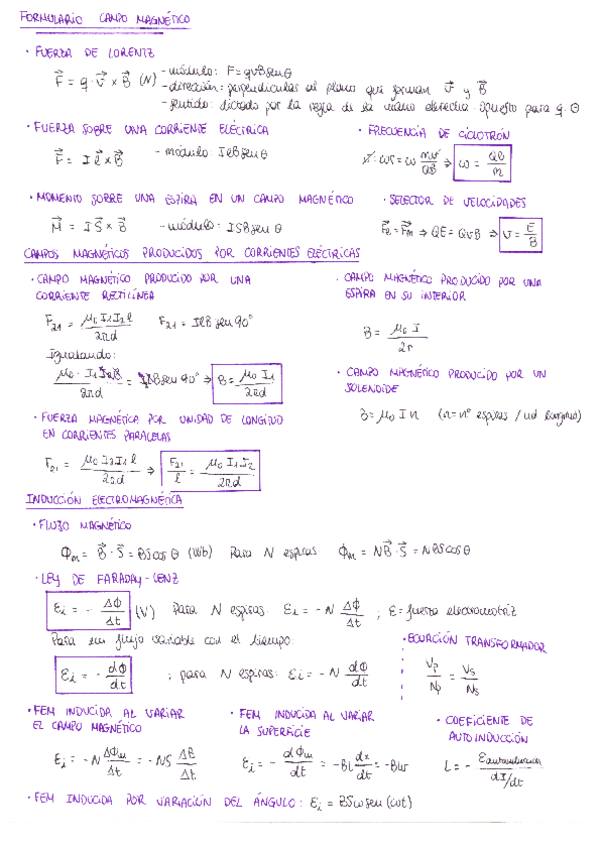 FORMULARIO CAMPO MAGNÉTICO
· FUERZA DE LORENTZ
F⃗ = q · v⃗ × B⃗ (N) - módulo: F = qvB sen θ
- dirección: perpendicular al plano que forman v⃗ y B⃗
- sentido: dictado por la regla de la mano derecha. Opuesto para q. ⊖
· FUERZA SOBRE UNA CORRIENTE ELÉCTRICA
F⃗ = I ℓ⃗ × B⃗ - módulo: IℓB sen θ
· FRECUENCIA DE CICLOTRÓN
⇒ ω = QB/m
· MOMENTO SOBRE UNA ESPIRA EN UN CAMPO MAGNÉTICO
M⃗ = I S⃗ × B⃗ - módulo: ISB sen θ
· SELECTOR DE VELOCIDADES
F⃗e = F⃗m ⇒ QE = QvB ⇒ v = E/B
CAMPOS MAGNÉTICOS PRODUCIDOS POR CORRIENTES ELÉCTRICAS
· CAMPO MAGNÉTICO PRODUCIDO POR UNA
CORRIENTE RECTILÍNEA
F₂₁ = μ₀ I₁ I₂ ℓ / 2πd F₂₁ = IℓB sen 90°
Igualando:
⇒ B = μ₀ I₁ / 2πd
· FUERZA MAGNÉTICA POR UNIDAD DE LONGITUD
EN CORRIENTES PARALELAS
F₂₁ = μ₀ I₂ I₁ ℓ / 2πd ⇒ F₂₁/ℓ = μ₀ I₁ I₂ / 2πd
· CAMPO MAGNÉTICO PRODUCIDO POR UNA
ESPIRA EN SU INTERIOR
B = μ₀ I / 2r
· CAMPO MAGNÉTICO PRODUCIDO POR UN
SOLENOIDE
B = μ₀ I n (n = nº espiras / ud longitud)
INDUCCIÓN ELECTROMAGNÉTICA
· FLUJO MAGNÉTICO
Φm = B⃗ · S⃗ = BS cos θ (Wb) Para N espiras Φm = N B⃗ · S⃗ = NBS cos θ
· LEY DE FARADAY-LENZ
Ɛi = - ΔΦ/Δt (V) Para N espiras: Ɛi = -N ΔΦ/Δt ; Ɛ = fuerza electromotriz
Para un flujo variable con el tiempo:
Ɛi = - dΦ/dt ; para N espiras: Ɛi = -N dΦ/dt
· ECUACIÓN TRANSFORMADOR
Vp/Np = Vs/Ns
· FEM INDUCIDA AL VARIAR
EL CAMPO MAGNÉTICO
Ɛi = -N ΔΦm/Δt = -NS ΔB/Δt
· FEM INDUCIDA AL VARIAR
LA SUPERFICIE
Ɛi = - dΦm/dt = -Bl dx/dt = -Blv
· COEFICIENTE DE
AUTOINDUCCIÓN
L = - Ɛautoinducida / dI/dt
· FEM INDUCIDA POR VARIACIÓN DEL ÁNGULO: Ɛi = BSω sen (ωt)